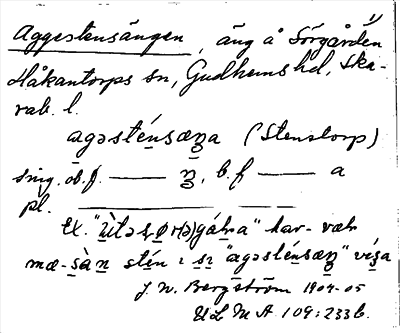 1)
Aggestensängen, äng å Sörgården
Håkantorps sn, Gudhems hd, Ska-
rab. l.
agəsténsæŋa (Stenstorp)
sing. ob. f. —— ŋ, b. f —— a
pl. ————
Ex. "
har-vah
mæ-sàn stén i "agəsténsæŋ" vísa
J. N. Bergström 1904-05
ULMA 109:233 b.